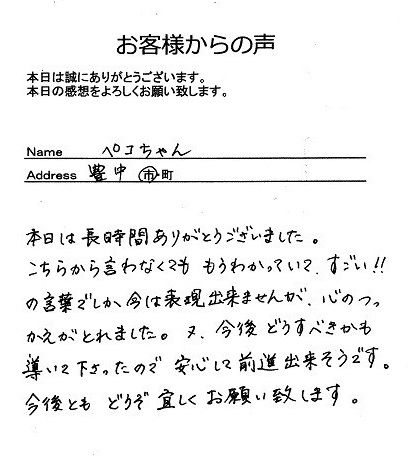 お客様からの声
本日は誠にありがとうございます。
本日の感想をよろしくお願い致します。
Name ペコちゃん
Address 豊中 市・町
本日は長時間ありがとうございました。
こちらから言わなくても もうわかっていて、すごい!!
の言葉でしか、今は表現出来ませんが、心のつっ
かえがとれました。又、今後どうすべきかも
導いて下さったので 安心して前進出来そうです。
今後とも どうぞ 宜しくお願い致します。